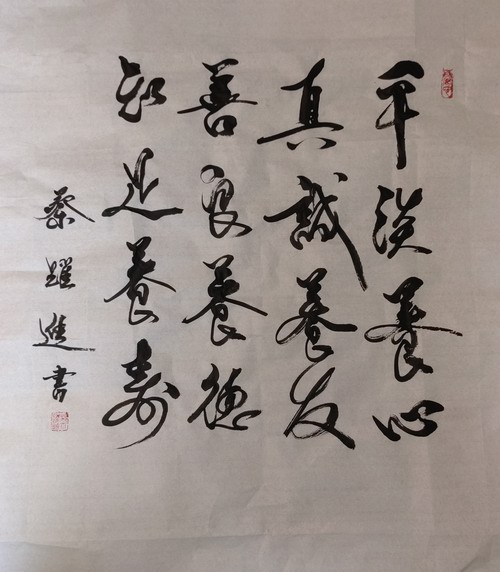 平淡養心
真誠養友
善良養德
知足養壽
蔡躍進書